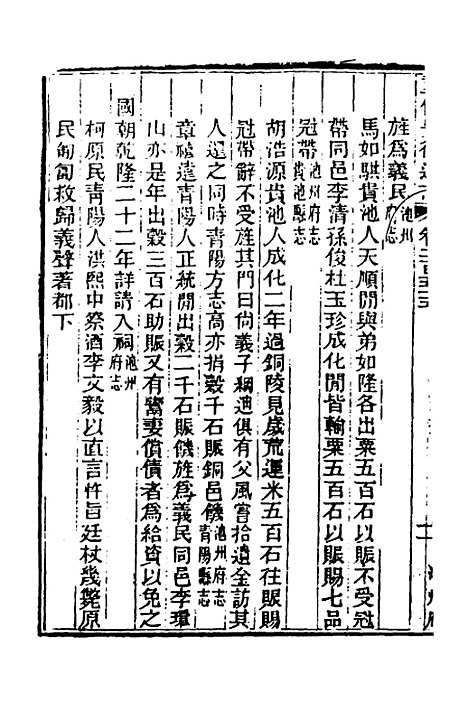 旌爲義民池州府志
馬如騏貴池人天順閒與弟如隆各出粟五百石以賑不受冠
帶同邑李清孫俊杜玉珍成化閒皆輸粟五百石以賑賜七品
冠帶池州府志貴池縣志
胡浩源貴池人成化二年過銅陵見歲荒運米五百石往賑賜
冠帶辭不受旌其門曰尚義子綱迪俱有父風嘗拾遺金訪其
人還之同時青陽方志高亦捐穀千石賑銅邑饑池州府志青陽縣志
章禎達青陽人正統閒出穀二千石賑饑旌爲義民同邑李瓊
山亦是年出穀三百石助賑又有鬻妻償債者爲給資以免之
國朝乾隆二十二年詳請入祠池州府志
柯原民青陽人洪熙中祭酒李文毅以直言忤旨廷杖幾斃原
民匍匐救歸義聲著都下